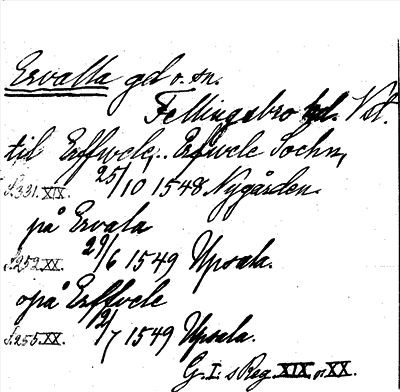 Ervalla gd o. sn.
Fellingsbro hd. Vstl.
til Erffwele,.. Erfwele Sochn,
S.331.XIX. 25/10 1548 Nygården.
på Ervala
S.252.XX. 29/6 1549 Upsala.
opå Erffvele
S.255.XX. 2/7 1549 Upsala.
G. I. s Reg. XIX o XX.